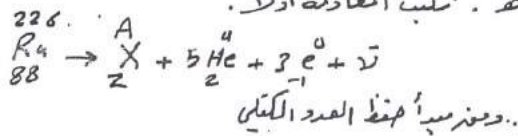 هـ. نكتب المعادلة أولاً.
²²⁶₈₈Ra → ᴬ_Z X + 5 ⁴₂He + 3 ⁰₋₁e + ν̄
..ومن مبدأ حفظ العدد الكتلي